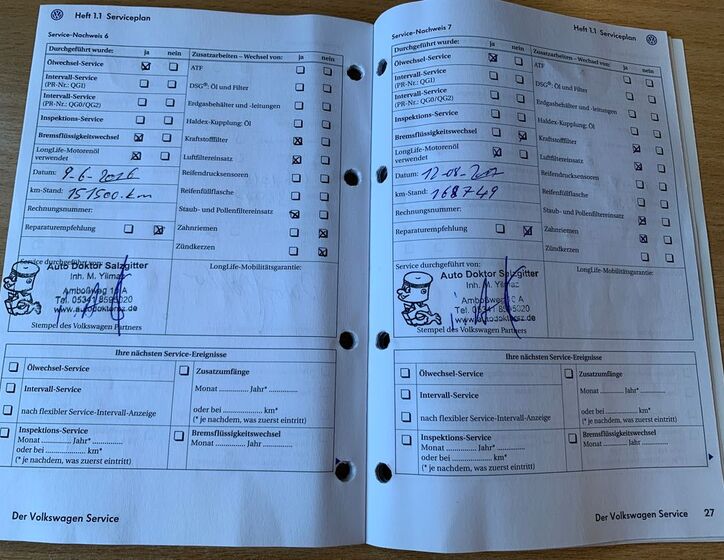 Heft 1.1 Serviceplan
Service-Nachweis 6
Durchgeführt wurde: ja nein
Zusatzarbeiten – Wechsel von: ja nein
Ölwechsel-Service
ATF
Intervall-Service
(PR-Nr.: QGI)
DSG®: Öl und Filter
Intervall-Service
(PR-Nr.: QG0/QG2)
Erdgasbehälter und -leitungen
Inspektions-Service
Haldex-Kupplung: Öl
Bremsflüssigkeitswechsel
Kraftstofffilter
LongLife-Motorenöl
verwendet
Luftfiltereinsatz
Datum: 9-6-2016
Reifendrucksensoren
km-Stand: 151500.km
Reifenfüllflasche
Rechnungsnummer:
Staub- und Pollenfiltereinsatz
Reparaturempfehlung
Zahnriemen
Zündkerzen
Service durchgeführt von:
LongLife-Mobilitätsgarantie:
Auto Doktor Salzgitter
Inh. M. Yilmaz
Amboßweg A
Tel. 05341 8595020
www.autodoktorsz.de
Stempel des Volkswagen Partners
Ihre nächsten Service-Ereignisse
Ölwechsel-Service
Zusatzumfänge
Intervall-Service
Monat .............. Jahr* ..............
nach flexibler Service-Intervall-Anzeige
oder bei .............. km*
(* je nachdem, was zuerst eintritt)
Inspektions-Service
Monat .......... Jahr* ..............
oder bei .............. km*
(* je nachdem, was zuerst eintritt)
Bremsflüssigkeitswechsel
Monat .......... Jahr ..............
Der Volkswagen Service
Heft 1.1 Serviceplan
Service-Nachweis 7
Durchgeführt wurde: ja nein
Zusatzarbeiten – Wechsel von: ja nein
Ölwechsel-Service
ATF
Intervall-Service
(PR-Nr.: QGI)
DSG®: Öl und Filter
Intervall-Service
(PR-Nr.: QG0/QG2)
Erdgasbehälter und -leitungen
Inspektions-Service
Haldex-Kupplung: Öl
Bremsflüssigkeitswechsel
Kraftstofffilter
LongLife-Motorenöl
verwendet
Luftfiltereinsatz
Datum:
Reifendrucksensoren
km-Stand: 168749
Reifenfüllflasche
Rechnungsnummer:
Staub- und Pollenfiltereinsatz
Reparaturempfehlung
Zahnriemen
Zündkerzen
Service durchgeführt von:
LongLife-Mobilitätsgarantie:
Auto Doktor Salzgitter
Inh. M. Yilmaz
Amboßweg A
Tel. 05341 8595020
www.autodoktorsz.de
Stempel des Volkswagen Partners
Ihre nächsten Service-Ereignisse
Ölwechsel-Service
Zusatzumfänge
Intervall-Service
Monat .............. Jahr* ..............
nach flexibler Service-Intervall-Anzeige
oder bei .............. km*
(* je nachdem, was zuerst eintritt)
Inspektions-Service
Monat .......... Jahr* ..............
oder bei .............. km*
(* je nachdem, was zuerst eintritt)
Bremsflüssigkeitswechsel
Monat .......... Jahr ..............
Der Volkswagen Service 27